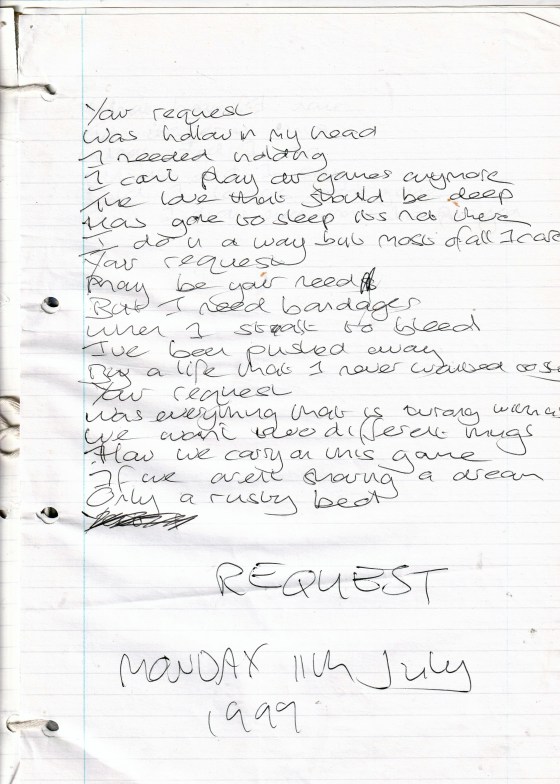 Your request
Was hollow in my head
I needed holding
I can't play our games anymore
The love that should be deep
Has gone to sleep its not there
I do in a way but most of all I care
Your request
May be your need
But I need bandages
When I start to bleed
I've been pushed away
By a life that I never wanted to
Your request
Was everything that is wrong with
We want two different things
How we carry on this game
If we aren't sharing a dream
Only a rusty bed
REQUEST
MONDAY 11th July
1999